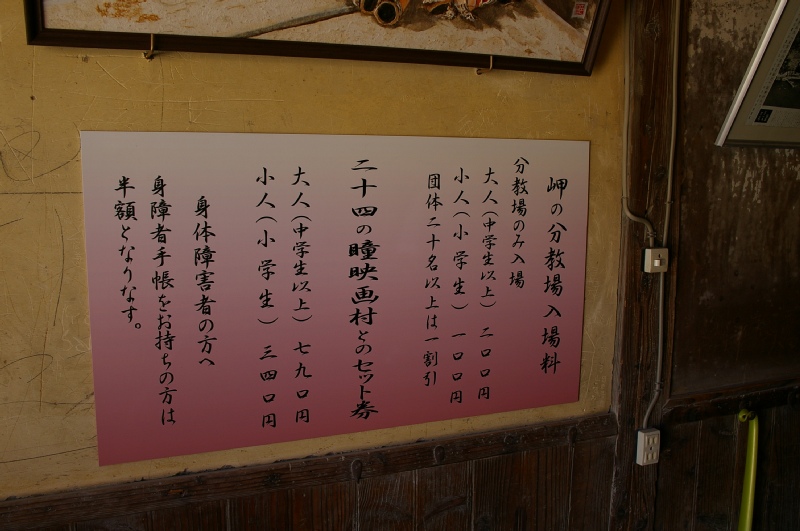 岬の分教場入場料
分教場のみ入場
大人(中学生以上)二〇〇円
小人(小学生)一〇〇円
団体二十名以上は一割引
二十四の瞳映画村とのセット券
大人(中学生以上)七九〇円
小人(小学生)三四〇円
身体障害者の方へ
身障者手帳をお持ちの方は
半額となりなす。